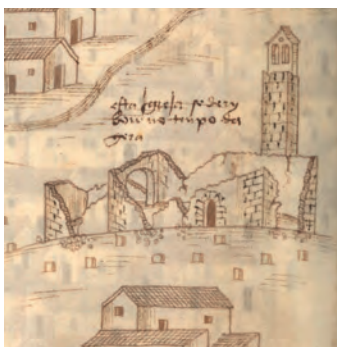 esta Igreja se dery
bou no tenpo da
gera